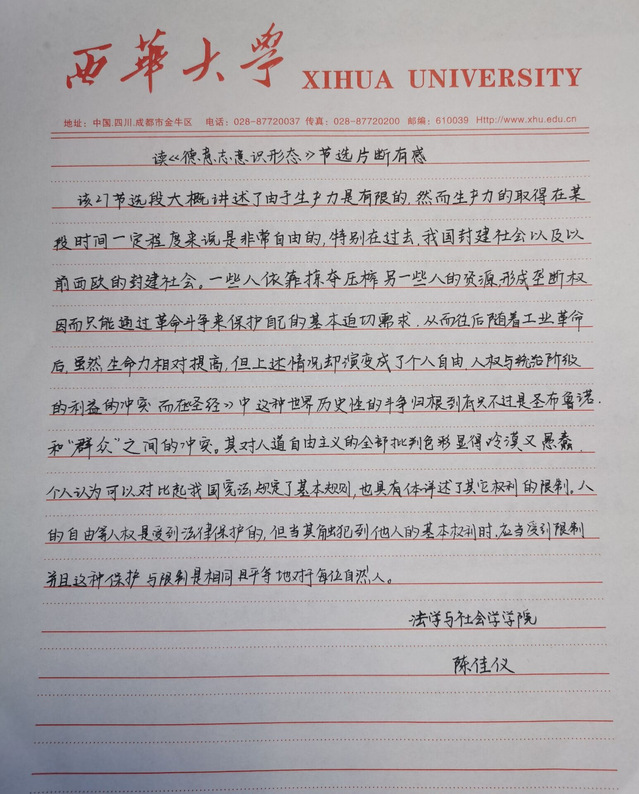 西華大學 XIHUA UNIVERSITY
地址：中国.四川.成都市金牛区 电话：028-87720037 传真：028-87720200 邮编：610039 Http://www.xhu.edu.cn
读《德意志意识形态》节选片断有感
该27节选段大概讲述了由于生产力是有限的，然而生产力的取得在某
段时间一定程度来说是非常自由的，特别在过去，我国封建社会以及以
前西欧的封建社会。一些人依靠掠夺压榨另一些人的资源，形成垄断权
因而只能通过革命斗争来保护自己的基本迫切需求，从而往后随着工业革命
后，虽然生命力相对提高，但上述情况却演变成了个人自由，人权与统治阶级
的利益的冲突，而在《圣经》中这种世界历史性的斗争归根到底只不过是圣布鲁诺.
和“群众”之间的冲突。其对人道自由主义的全部批判色彩显得冷漠又愚蠢，
个人认为可以对比起我国宪法，规定了基本规则，也具有体详述了其它权利的限制。人
的自由等人权是受到法律保护的，但当其触犯到他人的基本权利时，应当受到限制
并且这种保护与限制是相同且平等地对于每位自然人。
法学与社会学学院
陈佳仪